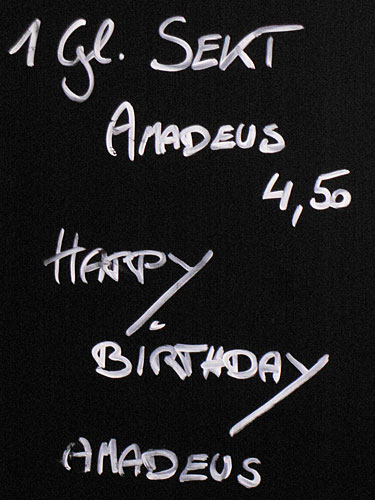 1 Gl. SEKT
AMADEUS
4,50
HAPPY
BIRTHDAY
AMADEUS